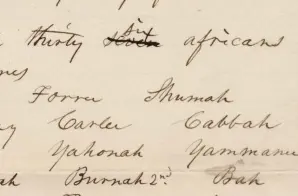 thirty six seven africans
nes
Forru Shumah
y Carlee Cabbah
Yahonah Yammanu
ah Burnah 2nd Bah